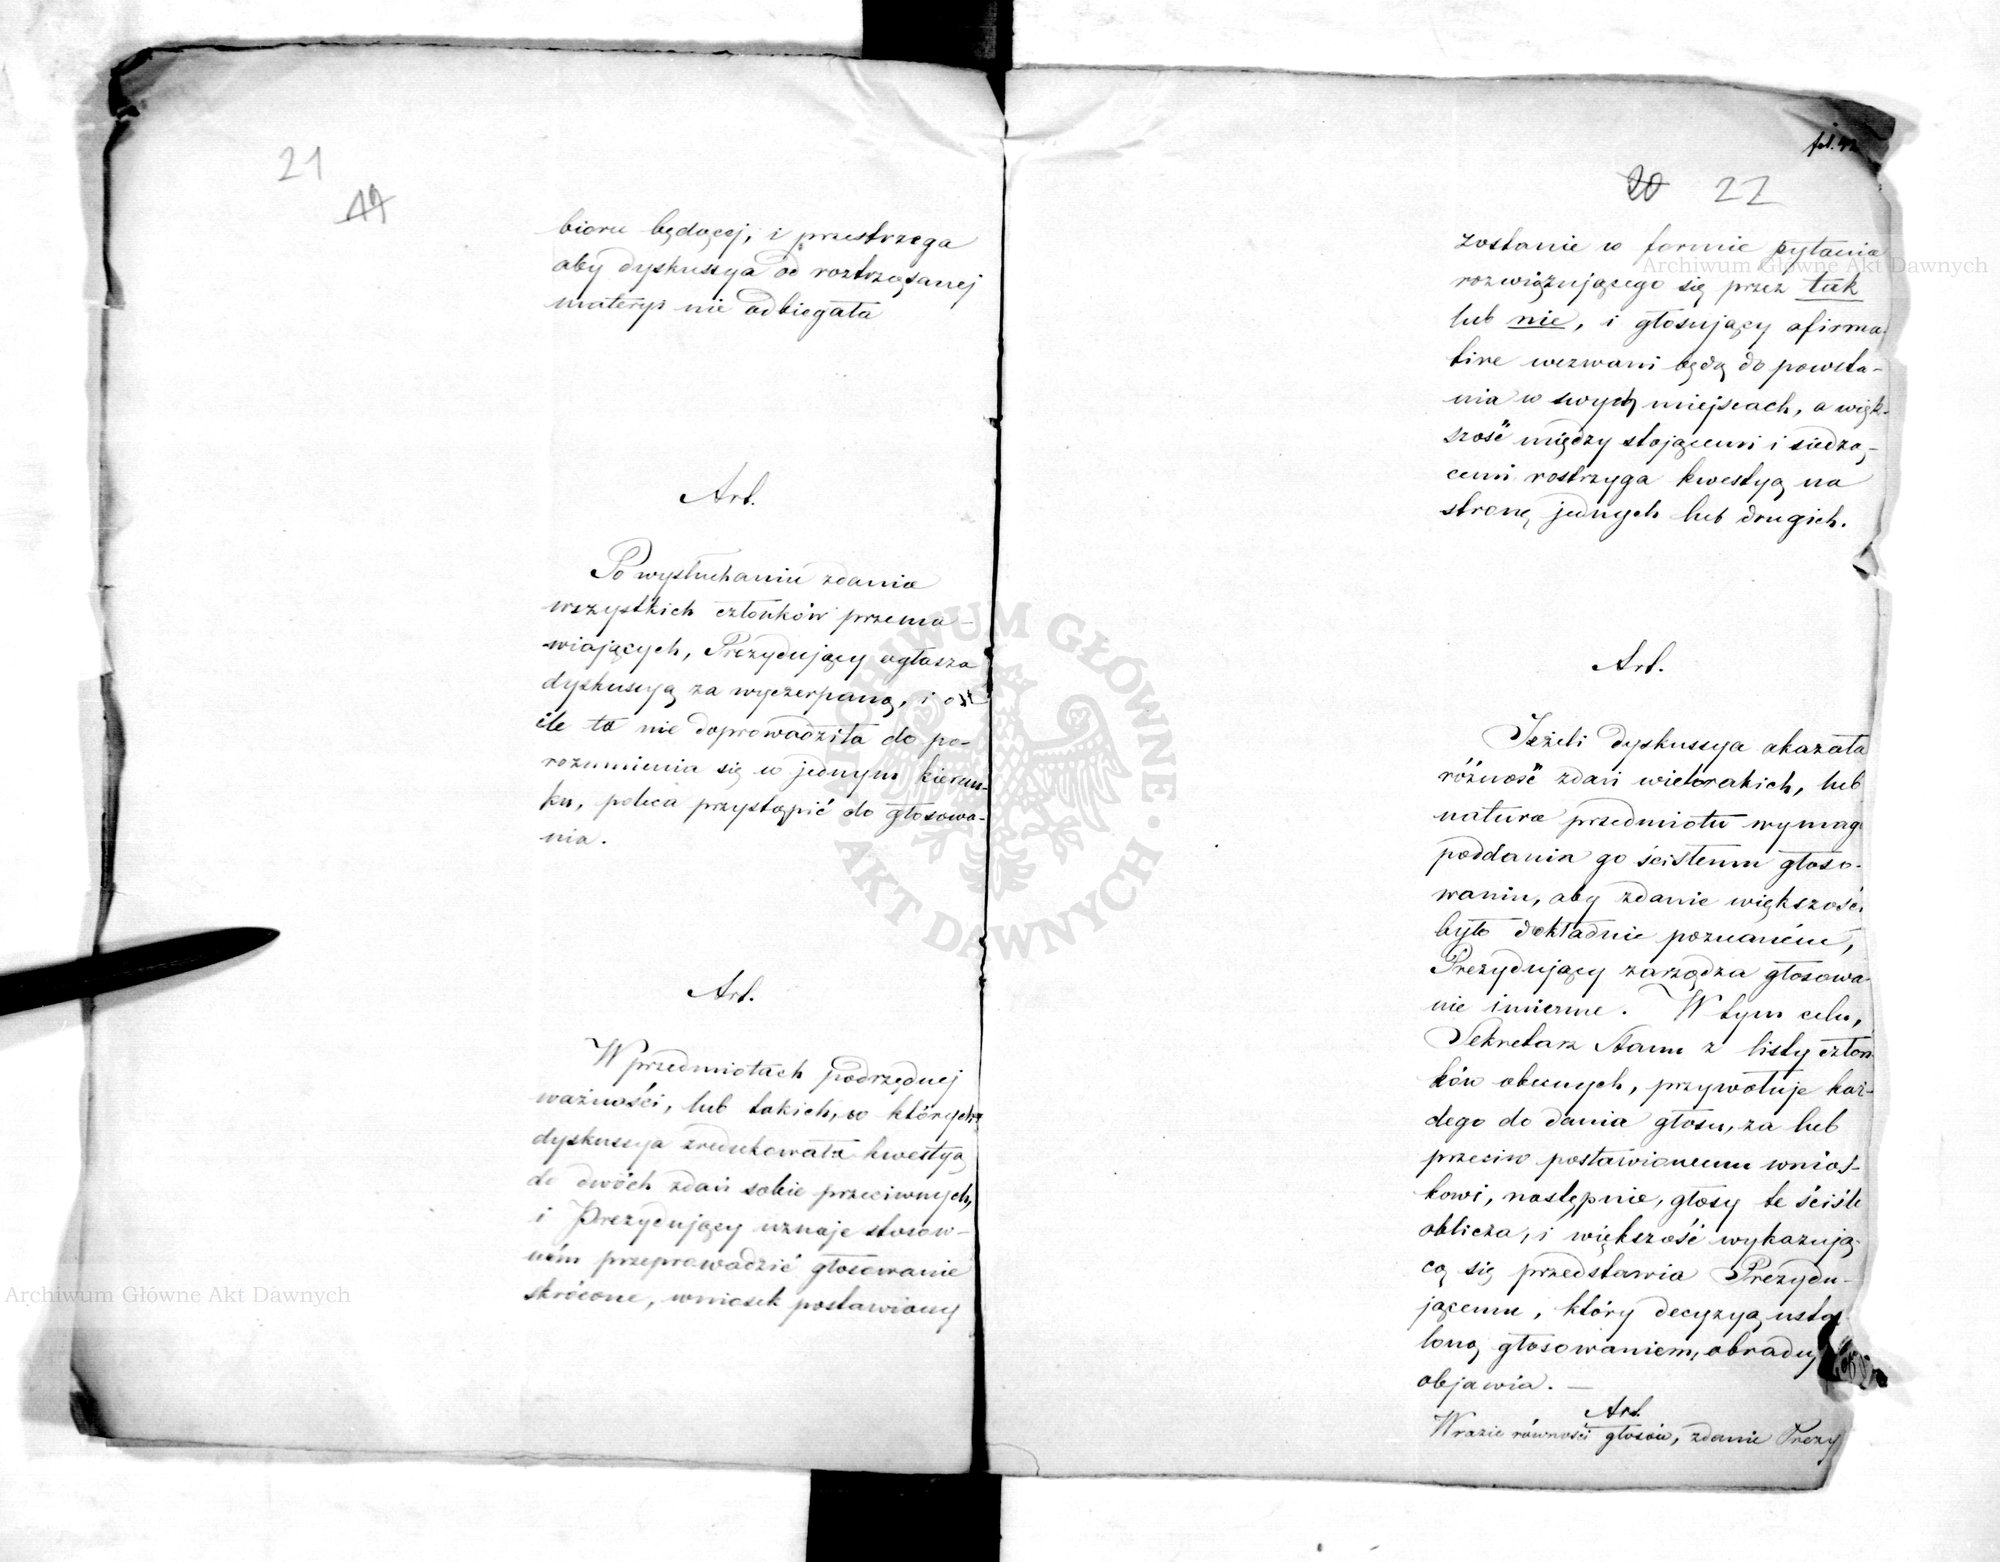 21
bioru będącej, i przestrzega
aby dyskussya od roztrząsanej
materyi nie odbiegała
Art.
Po wysłuchaniu zdania
wszystkich członków przema-
wiających, Prezydujący ogłasza
dyskussyą za wyczerpaną, i o
ile ta nie doprowadziła do po-
rozumienia się w jednym kierun-
ku, poleca przystąpić do głosowa-
nia.
Art.
W przedmiotach podrzędnej
ważności, lub takich, w których
dyskussya zredukowała kwestyą
do dwóch zdań sobie przeciwnych,
i Prezydujący uznaje stosow-
ném przeprowadzić głosowanie
skrócone, wniosek postawiony
fol.
20 22
zostanie w formie pytania
rozwiązującego się przez tak
lub nie, i głosujący afirma-
tive wezwani będą do powsta-
nia w swych miejscach, a więk-
szość między stojącemi i siedzą-
cemi rostrzyga kwestyą na
stronę jednych lub drugich.
Art.
Jeżeli dyskussya okazała
różność zdań wielorakich, lub
natura przedmiotu wymaga
poddania go ścisłemu głoso-
waniu, aby zdanie większości
było dokładnie poznaném,
Prezydujący zarządza głosowa-
nie imienne. W tym celu,
Sekretarz Stanu z listy człon-
ków obecnych, przywołuje każ-
dego do dania głosu, za lub
przeciw postawionemu wnios-
kowi, następnie, głosy te ściśle
oblicza, i większość wykazują-
cą się przedstawia Prezydu-
jącemu, który decyzyą usta-
loną głosowaniem, obradu
objawia. —
Art.
W razie równości głosów, zdanie Prezy
Archiwum Główne Akt Dawnych
Archiwum Główne Akt Dawnych
ARCHIWUM GŁÓWNE · AKT DAWNYCH ·